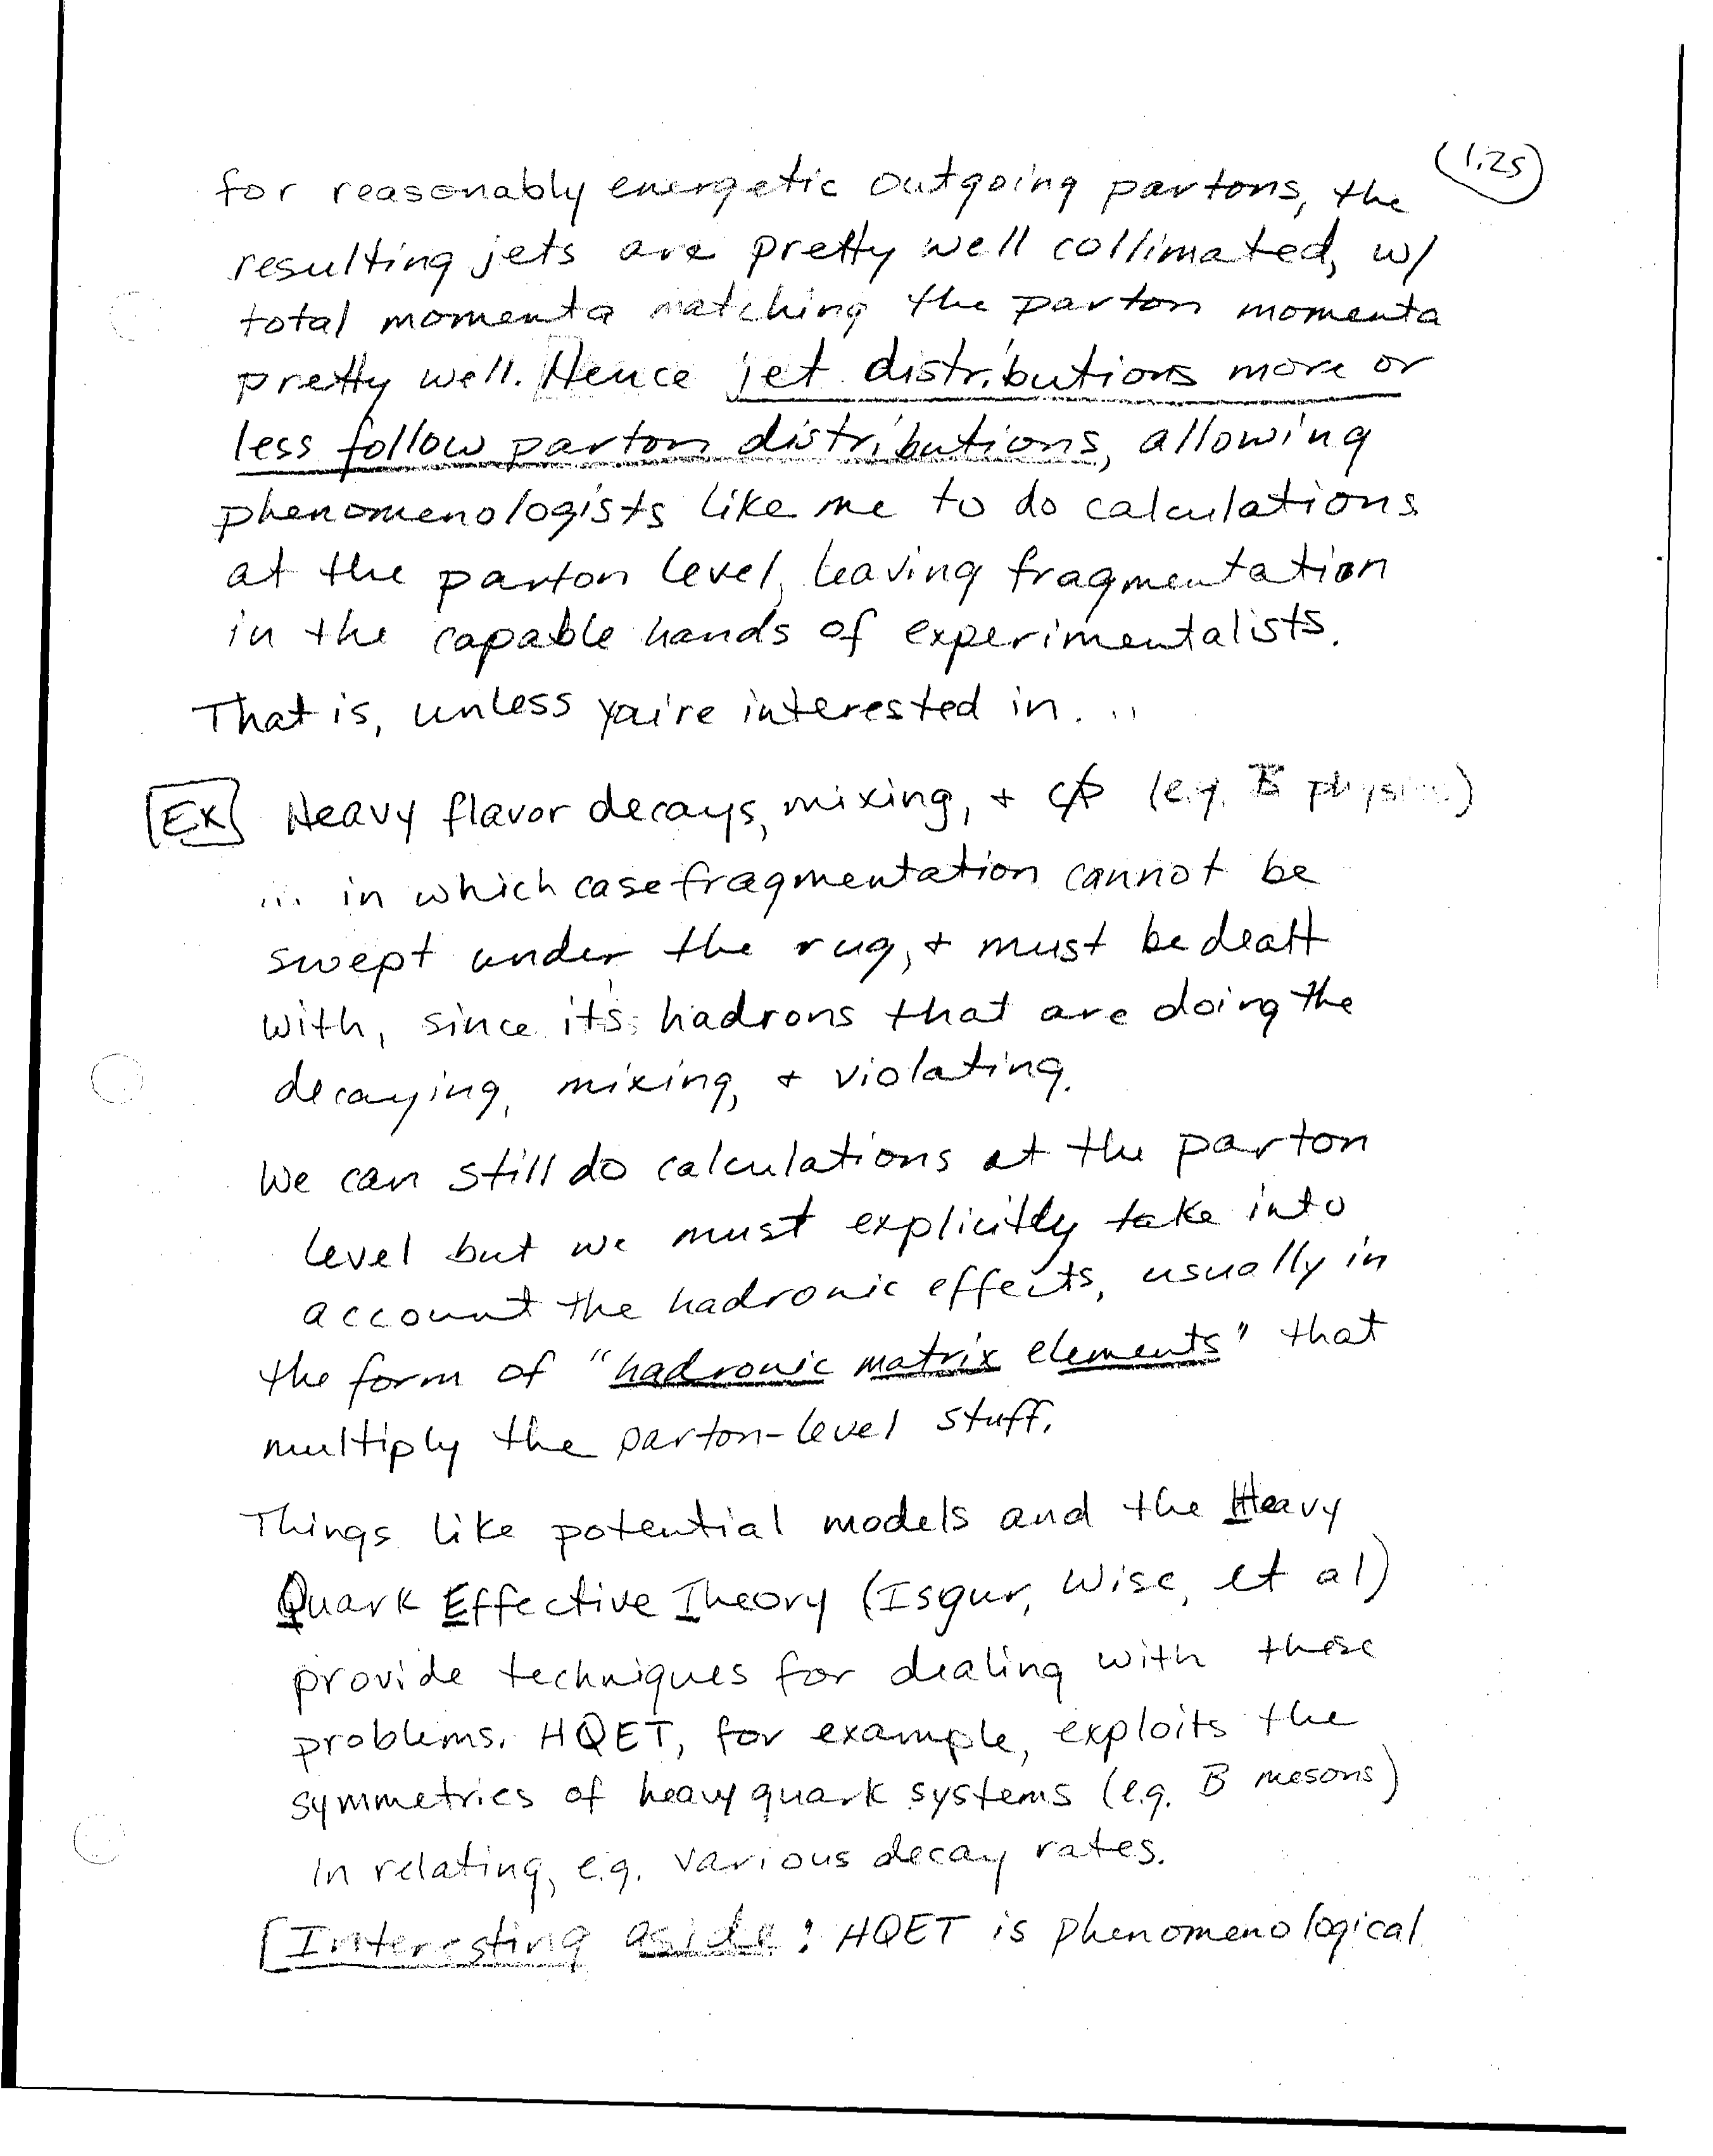 1.25
for reasonably energetic outgoing partons, the
resulting jets are pretty well collimated, w/
total momenta matching the parton momenta
pretty well. Hence jet distributions more or
less follow parton distributions, allowing
phenomenologists like me to do calculations
at the parton level, leaving fragmentation
in the capable hands of experimentalists.
That is, unless you're interested in...
Ex Heavy flavor decays, mixing, + C̸P̸ (e.g. B physics)
... in which case fragmentation cannot be
swept under the rug, + must be dealt
with, since it's hadrons that are doing the
decaying, mixing, + violating.
We can still do calculations at the parton
level but we must explicitly take into
account the hadronic effects, usually in
the form of "hadronic matrix elements" that
multiply the parton-level stuff.
Things like potential models and the Heavy
Quark Effective Theory (Isgur, Wise, et al)
provide techniques for dealing with these
problems. HQET, for example, exploits the
symmetries of heavy quark systems (e.g. B mesons)
in relating, e.g. various decay rates.
[Interesting aside: HQET is phenomenological